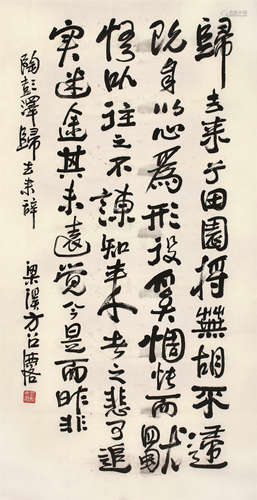 歸去来兮田園将蕪胡不還
既自以心為形役奚惆悵而獨
悟以往之不諫知来者之悲可追
实迷途其未遠觉今是而昨非
陶彭澤歸去来辞 梁溪方召麐